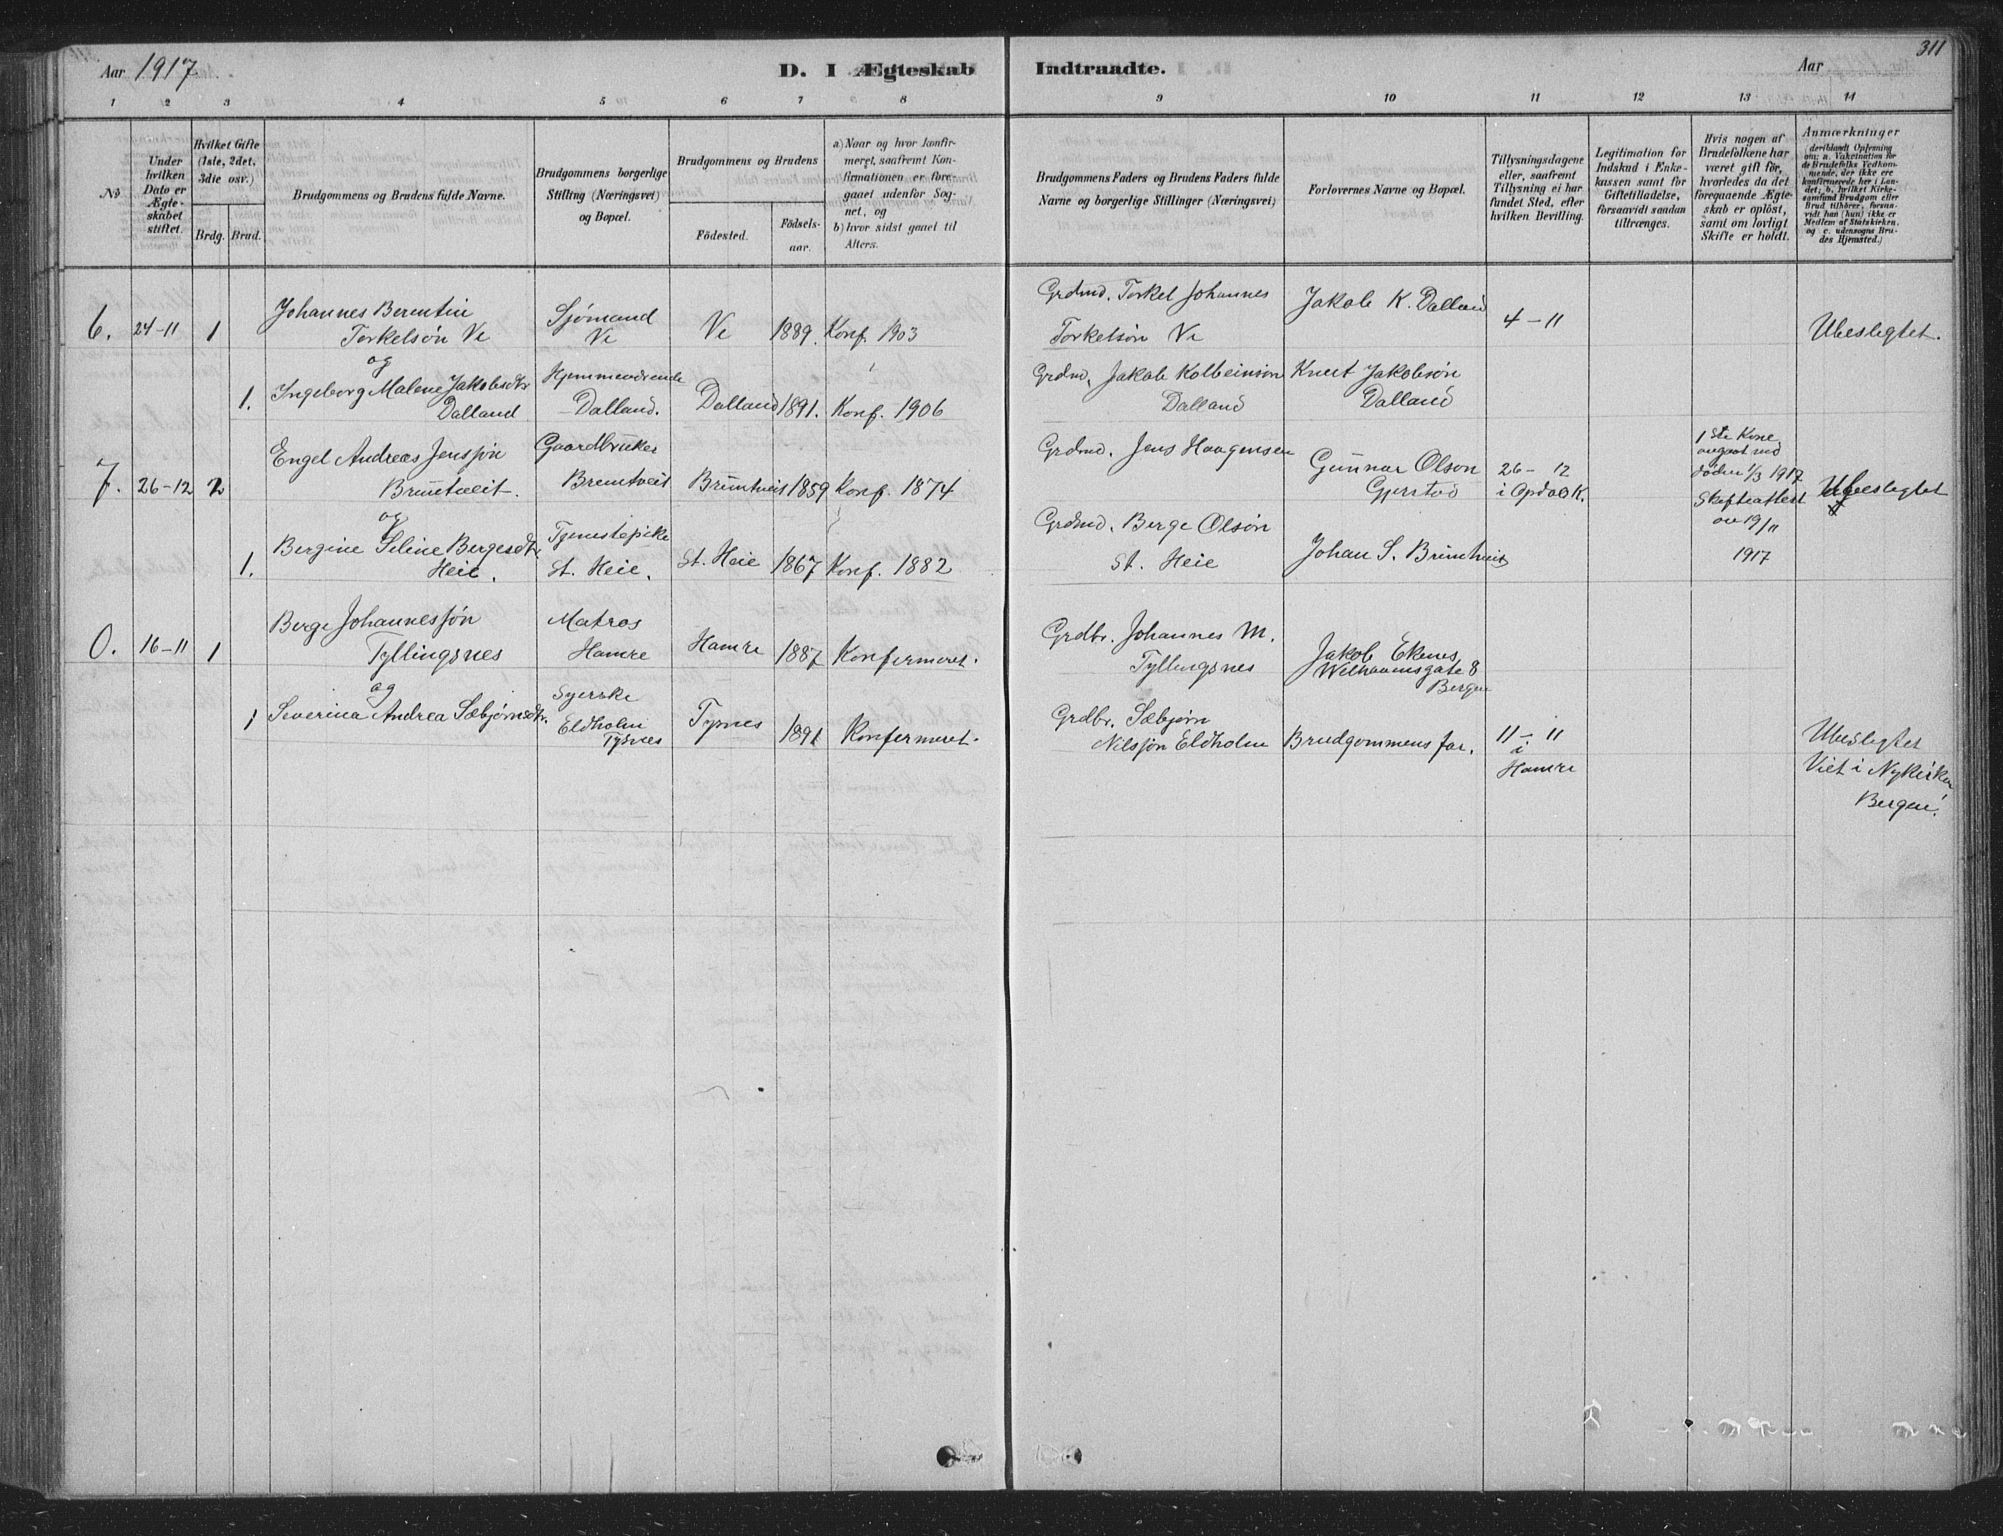 311
Aar 1917
D. I Ægteskab Indtraadte.
Aar
1 2 3 4 5 6 7 8 9 10 11 12 13 14
No
Under hvilken Dato er Ægteskabet stiftet.
Hvilket Gifte (1ste, 2det, 3die osv.)
Brdg. Brud.
Brudgommens og Brudens fulde Navne.
Brudgommens borgerlige Stilling (Næringsvei) og Bopæl.
Brudgommens og Brudens
Födested.
Födsels-aar.
a) Naar og hvor konfirmeret, saafremt Konfirmationen er foregaaet udenfor Sognet, og
b) hvor sidst gaaet til Alters.
Brudgommens Faders og Brudens Faders fulde Navne og borgerlige Stillinger (Næringsvei)
Forlovernes Navne og Bopæl.
Tillysningsdagene eller, saafremt Tillysning ei har fundet Sted, efter hvilken Bevilling.
Legitimation for Indskud i Enkekassen samt for Giftetilladelse, forsaavidt saadan tiltrænges.
Hvis nogen af Brudefolkene har været gift før, hvorledes da det foregaaende Ægteskab er oplöst, samt om lovligt Skifte er holdt.
Anmærkninger
(deriblandt Oplysning om: a. Vakcination for de Brudefolks Vedkommende, der ikke ere konfirmerede her i Landet; b. hvilket Kirkesamfund Brudgom eller Brud tilhører, forsaavidt han (hun) ikke er Medlem af Statskirken, og c. udensogns Brudes Hjemsted.)
6. 24-11 1 Johannes Berentin Torkelsön Ve Sjømand Ve Ve 1889. Konf. 1903 Grdmd. Torkel Johannes Torkelsön Ve Jakob K. Dalland 4-11 Ubeslegtet.
og
1. Ingeborg Malene Jakobsdtr Dalland Hjemmeværende Dalland. Dalland 1891. Konf. 1906 Grdmd. Jakob Kolbeinsön Dalland Knut Jakobsön Dalland
7. 26-12 2 Engel Andreas Jenssön Bruntveit. Gaardbruker Bruntveit Bruntveit 1859 Konf. 1874 Grdmd. Jens Haagensen Gunnar Olson Gjerstad 26-12 i Opdal K. 1ste Kone avgaat ved döden 1/3 1917 Skifteattest av 19/11 1917 Ubeslegtet
og
1. Bergine Seline Bergesdtr Heie. Tjenestepike St. Heie. St. Heie 1867 Konf. 1882 Grdmd. Berge Olsön St. Heie Johan S. Bruntveit
0. 16-11 1 Berge Johannessjön Tyllingsnes Matros Hamre Hamre 1887 Konfermeret. Grdbr. Johannes M. Tyllingsnes Jakob Ekenes Welhavnsgate 8 Bergen
og
1 Severina Andrea Sæbjørnsdtr. Syerske Eldholm Tysnes Tysnes 1891 Konfermeret. Grdbr. Sæbjørn Nilssjön Eldholm Brudgommens far. 11-11 i Hamre Ubeslegtet Viet i Nykirken Bergen.